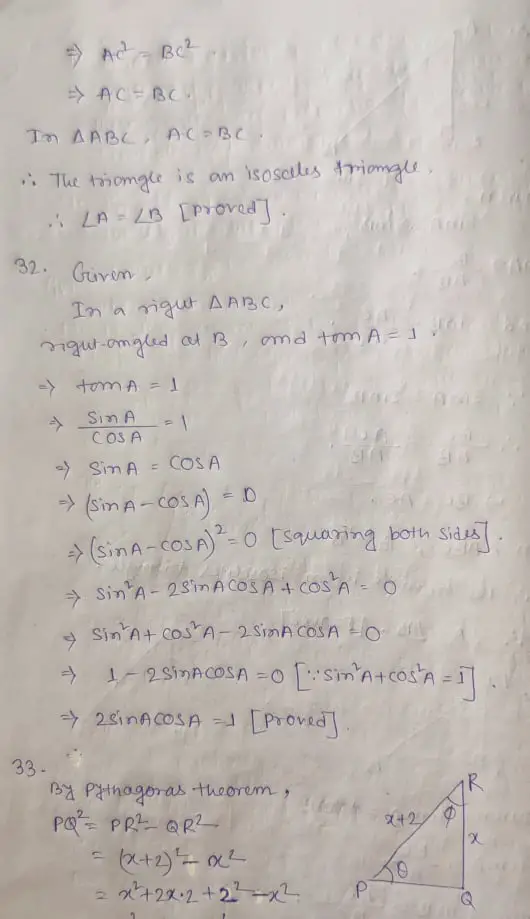 ⇒ AC² = BC²
⇒ AC = BC.
In ΔABC, AC = BC.
∴ The triangle is an isosceles triangle.
∴ ∠A = ∠B [Proved].
32. Given,
In a right ΔABC,
right-angled at B, and tan A = 1.
⇒ tan A = 1
⇒ Sin A / COS A = 1
⇒ Sin A = COS A
⇒ (sin A - cos A) = 0
⇒ (sin A - cos A)² = 0 [squaring both sides].
⇒ Sin²A - 2 Sin A COS A + cos²A = 0
⇒ Sin²A + cos²A - 2 Sin A COS A = 0
⇒ 1 - 2 Sin A COS A = 0 [∵ Sin²A + cos²A = 1].
⇒ 2 Sin A COS A = 1 [Proved].
33.
By Pythagoras theorem,
PQ² = PR² - QR²
= (x+2)² - x²
= x² + 2x·2 + 2² - x²
R
φ
x+2
x
θ
P
Q